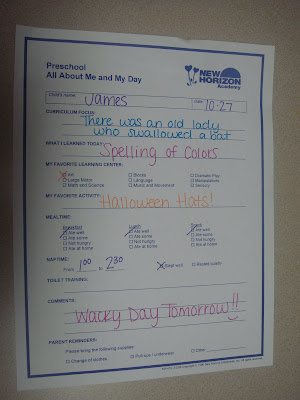 Preschool
All About Me and My Day
NEW HORIZON
Academy
CHILD'S NAME James DATE 10-27
CURRICULUM FOCUS:
There was an old lady
who swallowed a bat
WHAT I LEARNED TODAY:
Spelling of Colors
MY FAVORITE LEARNING CENTER:
Art Blocks Dramatic Play
Large Motor Language Manipulatives
Math and Science Music and Movement Sensory
MY FAVORITE ACTIVITY:
Halloween Hats!
MEALTIME:
Breakfast Lunch Snack
Ate well Ate well Ate well
Ate some Ate some Ate some
Not hungry Not hungry Not hungry
Ate at home Ate at home Ate at home
NAPTIME:
From 1:00 to 2:30 Slept well Rested quietly
TOILET TRAINING:
COMMENTS:
Wacky Day Tomorrow!!
PARENT REMINDERS:
Please bring the following supplies:
Change of clothes Pull-ups / underwear Other